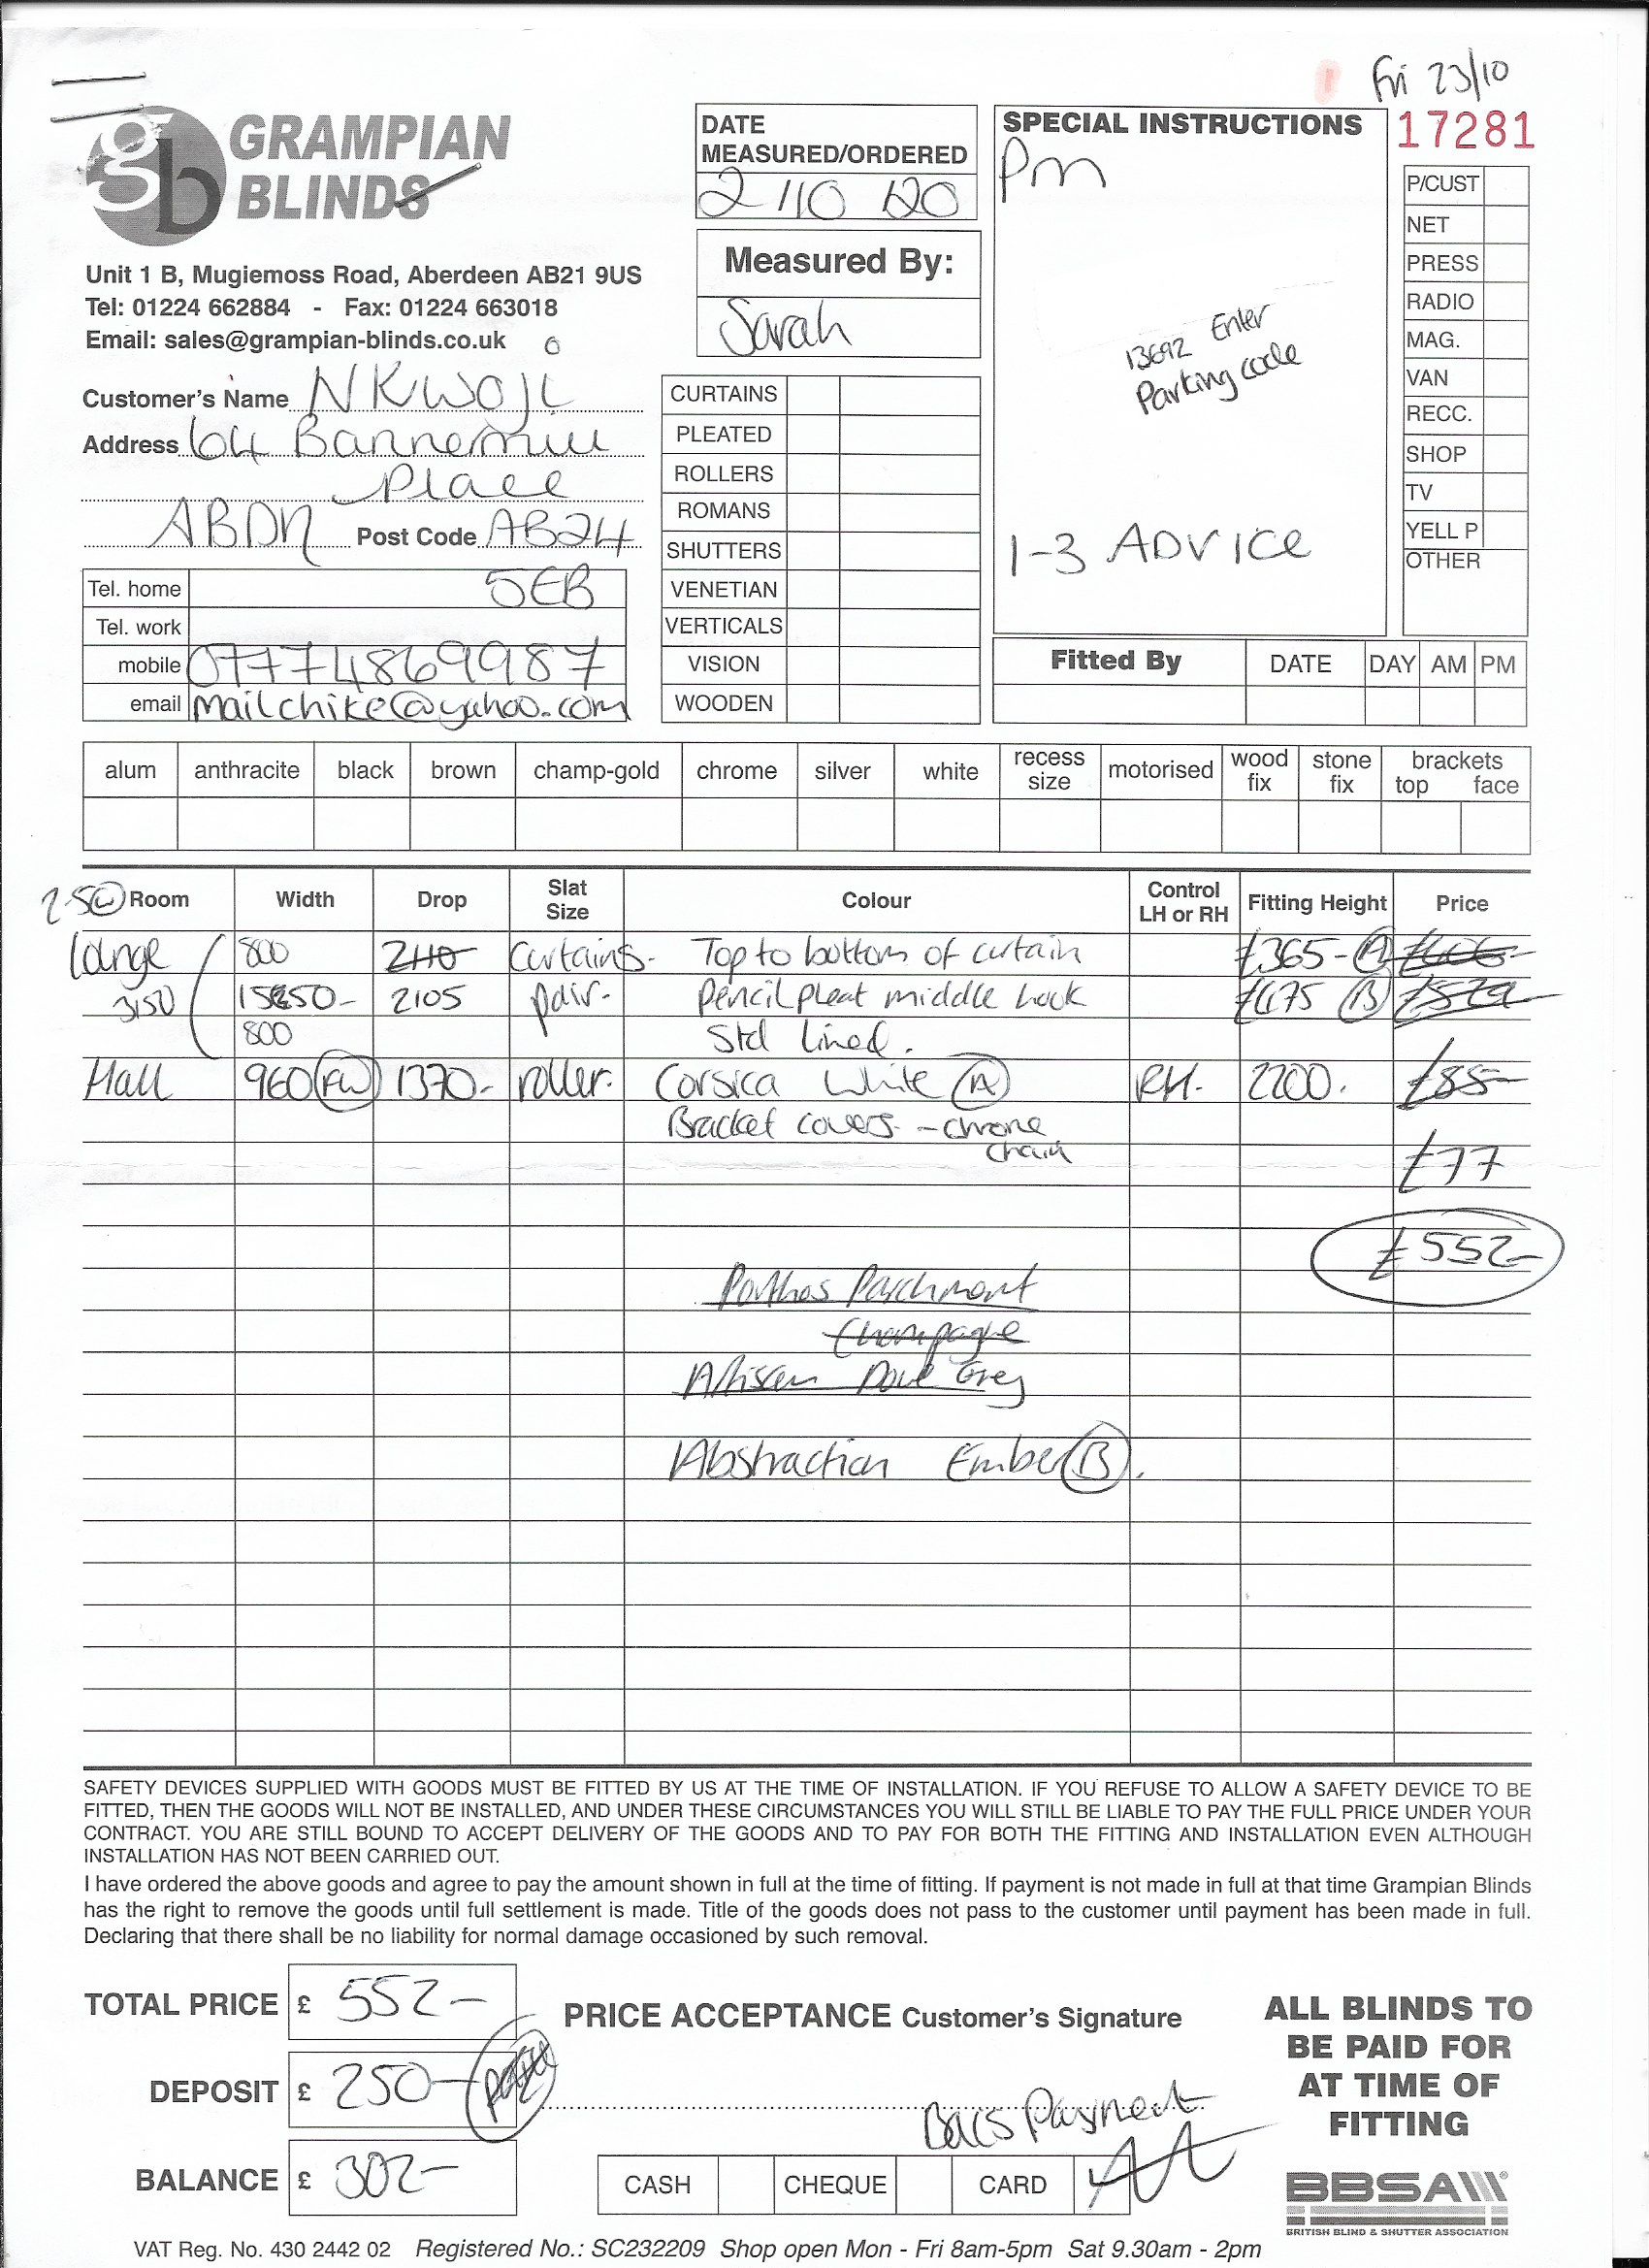 Fri 23/10
17281
GRAMPIAN
BLINDS
Unit 1 B, Mugiemoss Road, Aberdeen AB21 9US
Tel: 01224 662884 - Fax: 01224 663018
Email: sales@grampian-blinds.co.uk
Customer's Name NKWOJI
Address 64 Bannermill
Place
ABDN Post Code AB24
5EB
Tel. home
Tel. work
mobile 07774869987
email mailchike@yahoo.com
DATE
MEASURED/ORDERED
2/10/20
Measured By:
Sarah
CURTAINS
PLEATED
ROLLERS
ROMANS
SHUTTERS
VENETIAN
VERTICALS
VISION
WOODEN
SPECIAL INSTRUCTIONS
Pm
13692 Enter
Parking code
1-3 ADVICE
P/CUST
NET
PRESS
RADIO
MAG.
VAN
RECC.
SHOP
TV
YELL P
OTHER
Fitted By DATE DAY AM PM
alum anthracite black brown champ-gold chrome silver white recess size motorised wood fix stone fix brackets top face
Room Width Drop Slat Size Colour Control LH or RH Fitting Height Price
Lounge 800 2110 Curtains- Top to bottom of curtain £365- A
3150 2105 pair- Pencil pleat middle hook £475 B
800 Std lined.
Hall 960 FW 1370- roller. Corsica White A RH. 2200. £85-
Bracket covers - chrome
chain
£77
£552-
Porthos Parchment
Champagne
Dove Grey
Abstraction Ember B.
SAFETY DEVICES SUPPLIED WITH GOODS MUST BE FITTED BY US AT THE TIME OF INSTALLATION. IF YOU REFUSE TO ALLOW A SAFETY DEVICE TO BE
FITTED, THEN THE GOODS WILL NOT BE INSTALLED, AND UNDER THESE CIRCUMSTANCES YOU WILL STILL BE LIABLE TO PAY THE FULL PRICE UNDER YOUR
CONTRACT. YOU ARE STILL BOUND TO ACCEPT DELIVERY OF THE GOODS AND TO PAY FOR BOTH THE FITTING AND INSTALLATION EVEN ALTHOUGH
INSTALLATION HAS NOT BEEN CARRIED OUT.
I have ordered the above goods and agree to pay the amount shown in full at the time of fitting. If payment is not made in full at that time Grampian Blinds
has the right to remove the goods until full settlement is made. Title of the goods does not pass to the customer until payment has been made in full.
Declaring that there shall be no liability for normal damage occasioned by such removal.
TOTAL PRICE £ 552-
DEPOSIT £ 250-
BALANCE £ 302-
PRICE ACCEPTANCE Customer's Signature
Bacs Payment
CASH CHEQUE CARD
ALL BLINDS TO
BE PAID FOR
AT TIME OF
FITTING
BBSA
BRITISH BLIND & SHUTTER ASSOCIATION
VAT Reg. No. 430 2442 02 Registered No.: SC232209 Shop open Mon - Fri 8am-5pm Sat 9.30am - 2pm